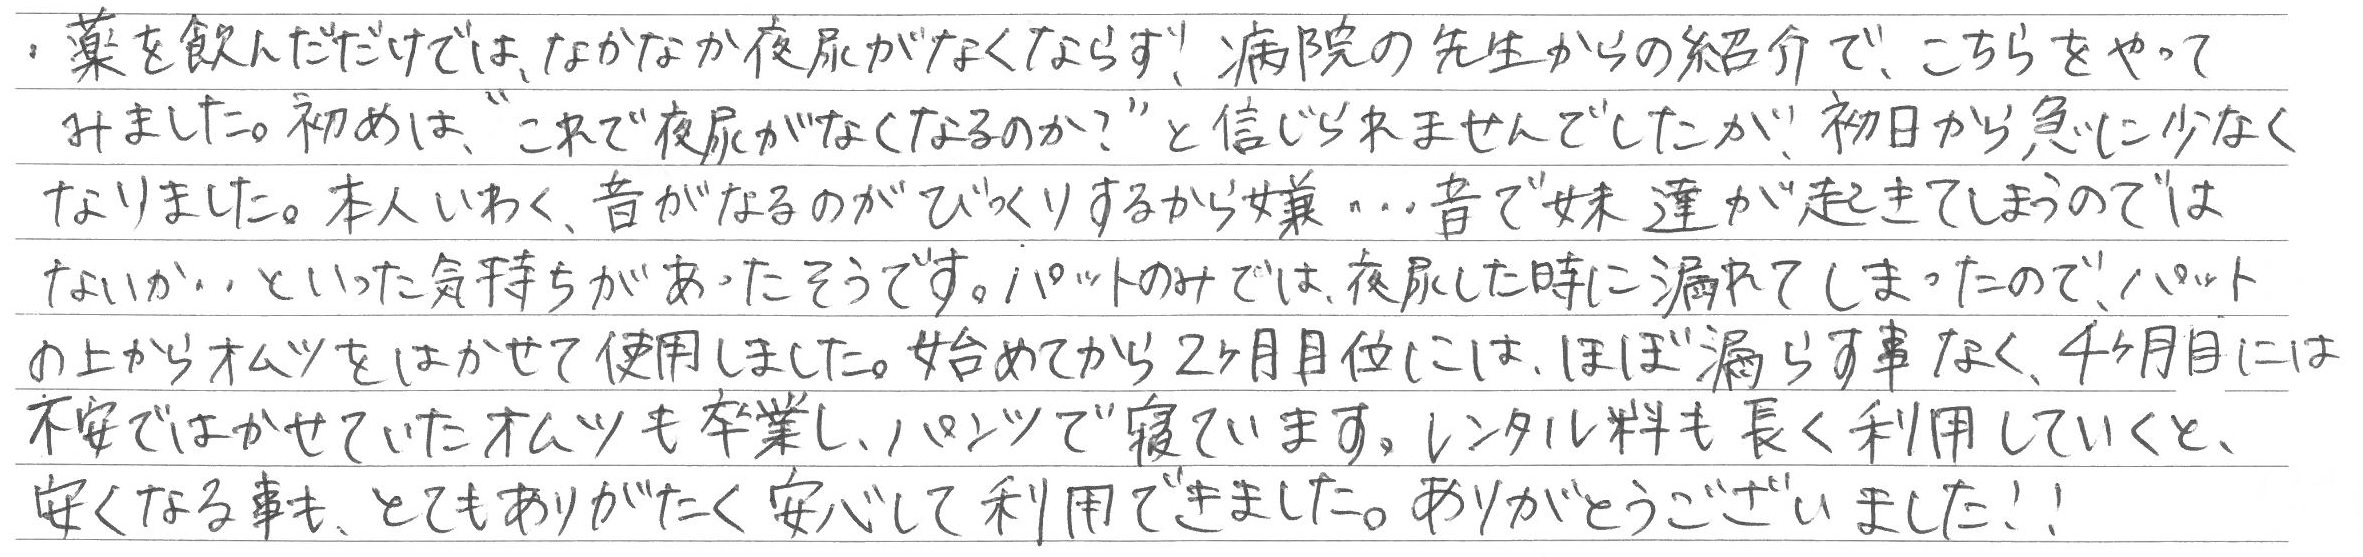 ・薬を飲んだだけでは、なかなか夜尿がなくならず、病院の先生からの紹介で、こちらをやって
みました。初めは、“これで夜尿がなくなるのか？”と信じられませんでしたが、初日から急に少なく
なりました。本人いわく、音がなるのがびっくりするから嫌…音で妹達が起きてしまうのでは
ないか‥といった気持ちがあったそうです。パットのみでは、夜尿した時に漏れてしまったので、パット
の上からオムツをはかせて使用しました。始めてから2ヶ月目位には、ほぼ漏らす事なく、4ヶ月目には
不安ではかせていたオムツも卒業し、パンツで寝ています。レンタル料も長く利用していくと、
安くなる事も、とてもありがたく安心して利用できました。ありがとうございました！！